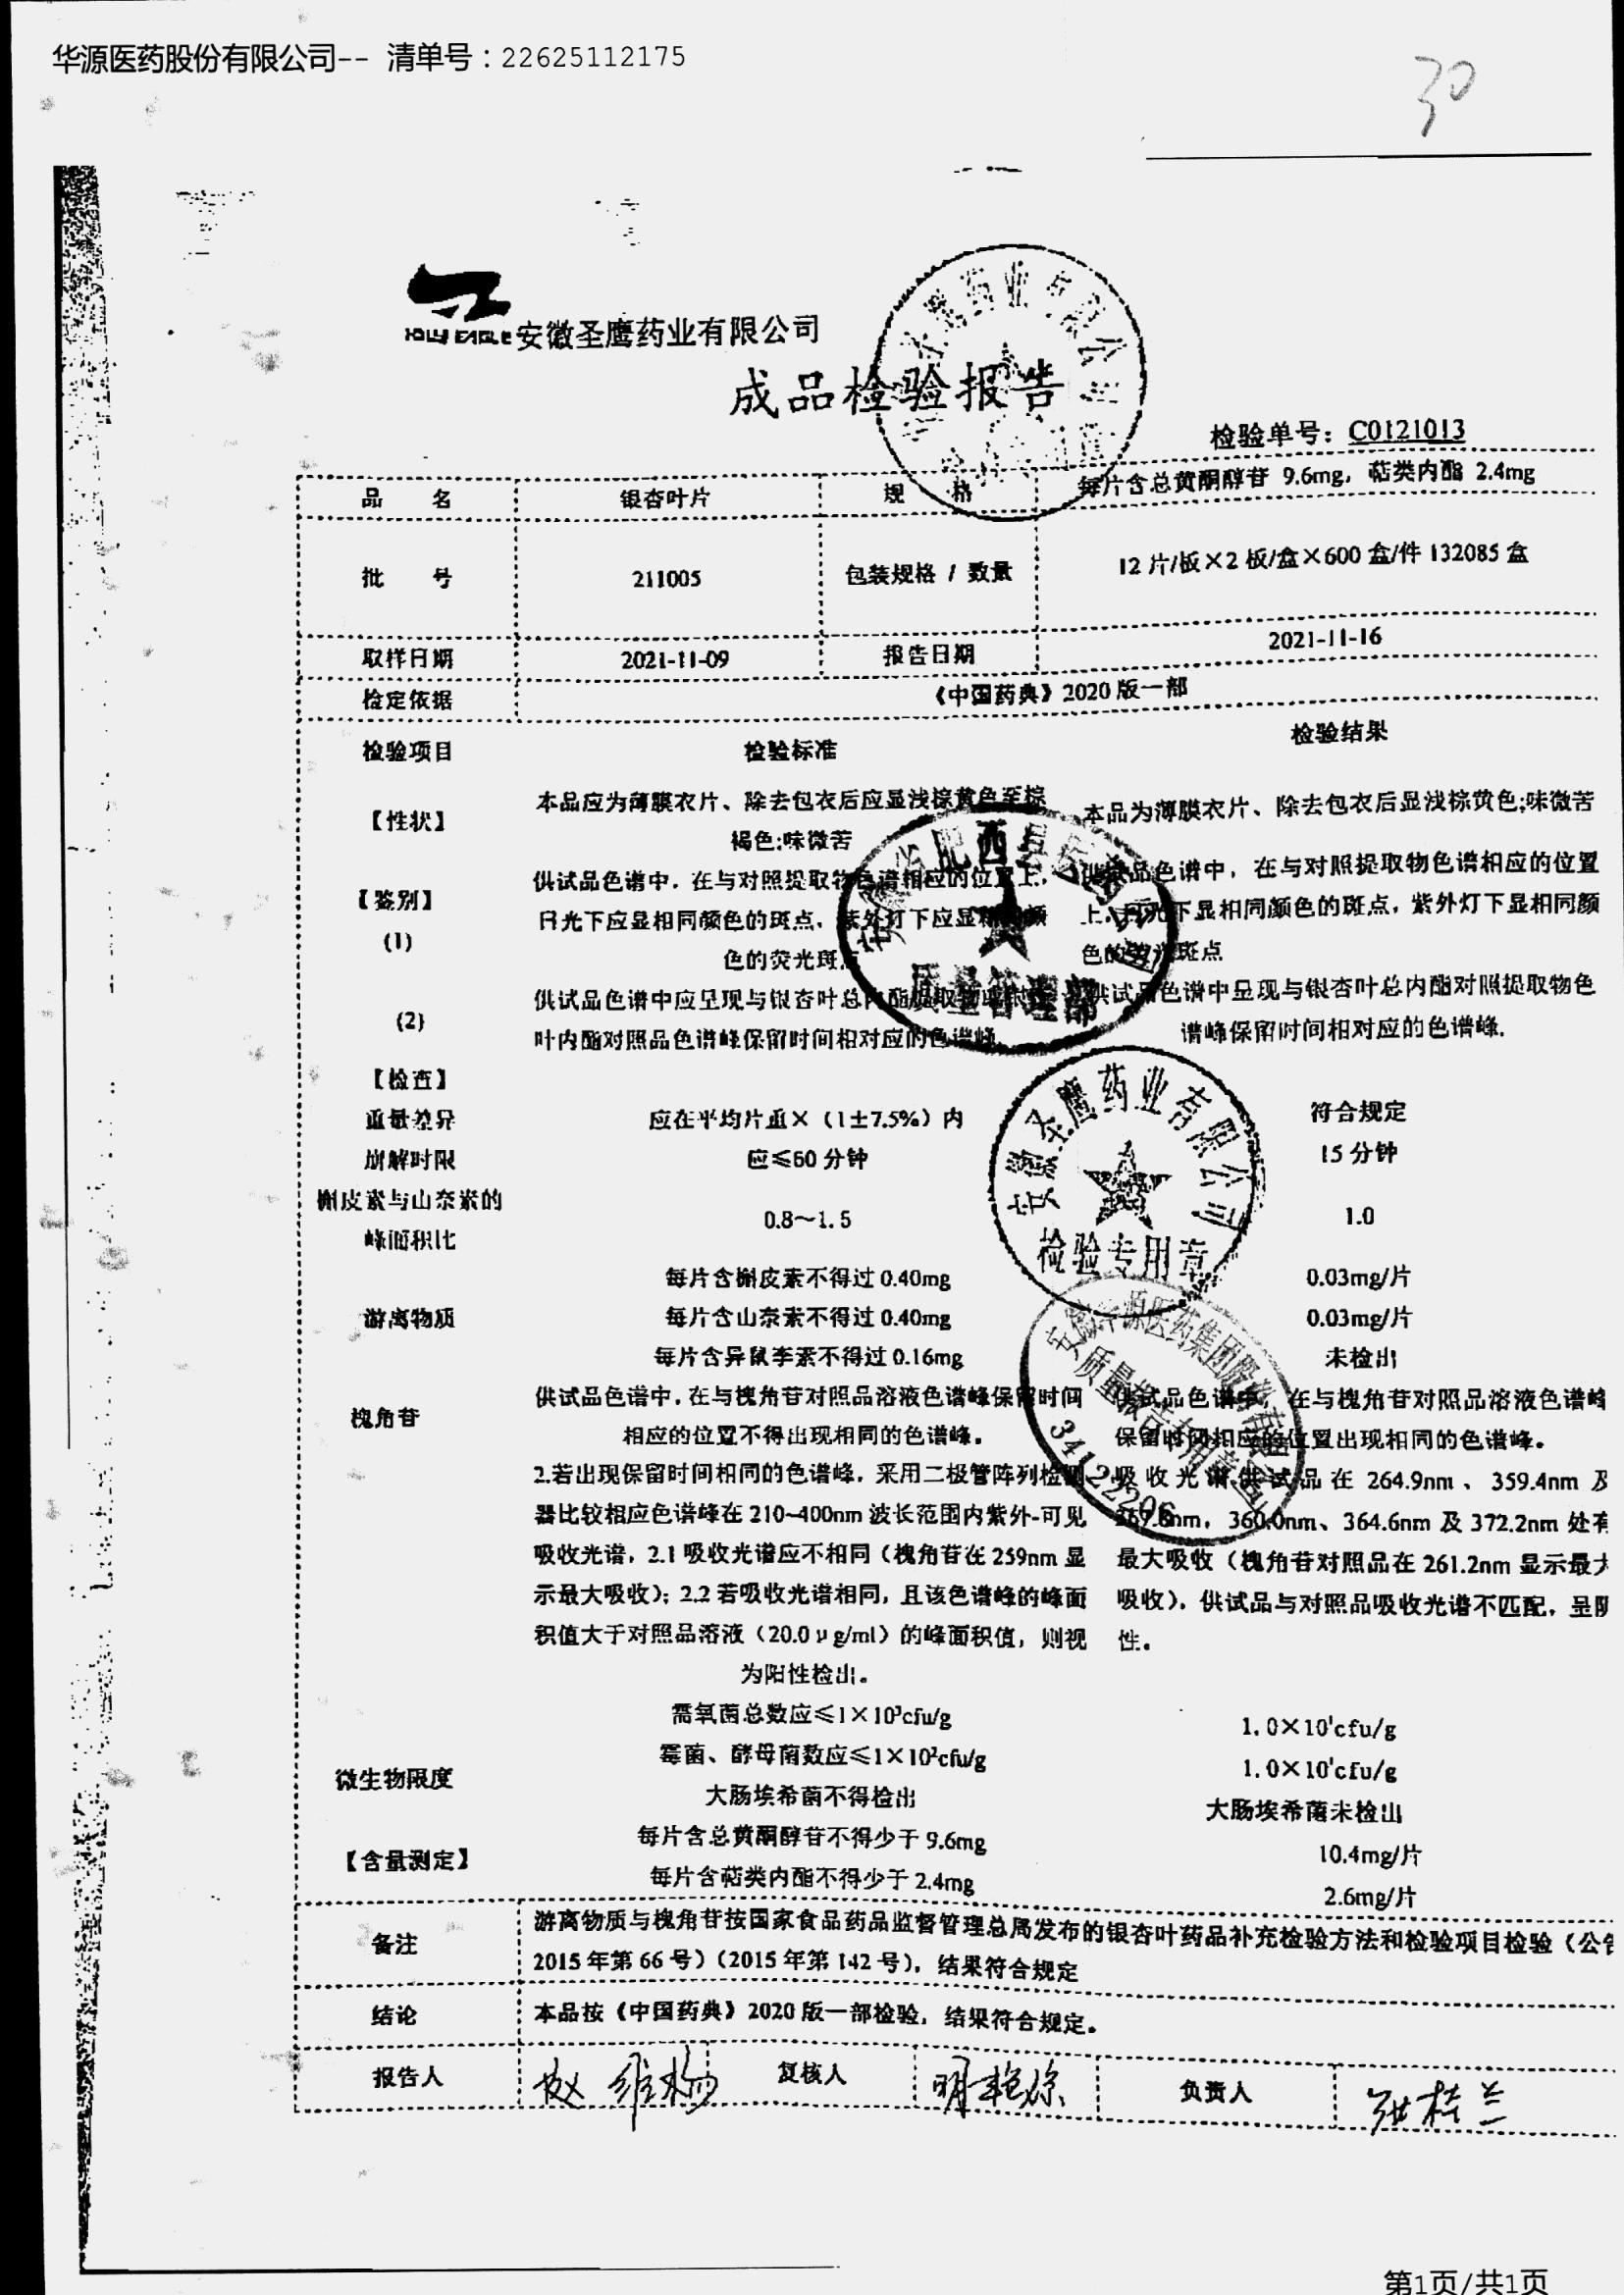 华源医药股份有限公司-- 清单号：22625112175
30
HOLLY EAGLE 安徽圣鹰药业有限公司
成品检验报告
检验单号：C0121013
品 名 银杏叶片 规 格 每片含总黄酮醇苷 9.6mg，萜类内酯 2.4mg
批 号 211005 包装规格 / 数量 12 片/板×2 板/盒×600 盒/件 132085 盒
取样日期 2021-11-09 报告日期 2021-11-16
检定依据 《中国药典》2020 版一部
检验项目 检验标准 检验结果
【性状】 本品应为薄膜衣片、除去包衣后应显浅棕黄色至棕
褐色;味微苦
本品为薄膜衣片、除去包衣后显浅棕黄色;味微苦
【鉴别】
(1)
供试品色谱中，在与对照提取物色谱相应的位置上，
日光下应显相同颜色的斑点，紫外灯下应显相同颜
色的荧光斑点
供试品色谱中，在与对照提取物色谱相应的位置
上，日光下显相同颜色的斑点，紫外灯下显相同颜
色的荧光斑点
(2)
供试品色谱中应呈现与银杏叶总内酯提取物
叶内酯对照品色谱峰保留时间相对应的色谱峰.
供试品色谱中显现与银杏叶总内酯对照提取物色
谱峰保留时间相对应的色谱峰.
【检查】
重量差异 应在平均片重×（1±7.5%）内 符合规定
崩解时限 应≤60 分钟 15 分钟
槲皮素与山奈素的
峰面积比
0.8～1.5 1.0
游离物质
每片含槲皮素不得过 0.40mg 0.03mg/片
每片含山奈素不得过 0.40mg 0.03mg/片
每片含异鼠李素不得过 0.16mg 未检出
槐角苷
供试品色谱中，在与槐角苷对照品溶液色谱峰保留时间
相应的位置不得出现相同的色谱峰。
2.若出现保留时间相同的色谱峰，采用二极管阵列检测
器比较相应色谱峰在 210~400nm 波长范围内紫外-可见
吸收光谱，2.1 吸收光谱应不相同（槐角苷在 259nm 显
示最大吸收）；2.2 若吸收光谱相同，且该色谱峰的峰面
积值大于对照品溶液（20.0μg/ml）的峰面积值，则视
为阳性检出。
供试品色谱中，在与槐角苷对照品溶液色谱峰
保留时间相应的位置出现相同的色谱峰。
吸收光谱供试品在 264.9nm、359.4nm 及
267.8nm，360.0nm、364.6nm 及 372.2nm 处有
最大吸收（槐角苷对照品在 261.2nm 显示最大
吸收），供试品与对照品吸收光谱不匹配，呈阴
性。
微生物限度
需氧菌总数应≤1×10³cfu/g 1.0×10¹cfu/g
霉菌、酵母菌数应≤1×10²cfu/g 1.0×10¹cfu/g
大肠埃希菌不得检出 大肠埃希菌未检出
【含量测定】
每片含总黄酮醇苷不得少于 9.6mg 10.4mg/片
每片含萜类内酯不得少于 2.4mg 2.6mg/片
备注 游离物质与槐角苷按国家食品药品监督管理总局发布的银杏叶药品补充检验方法和检验项目检验（公告
2015 年第 66 号）（2015 年第 142 号），结果符合规定
结论 本品按《中国药典》2020 版一部检验，结果符合规定。
报告人 赵维杨 复核人 明艳琼 负责人 张桂兰
质量管理部
安徽圣鹰药业有限公司
检验专用章
安徽华源医药集团股份有限公司
质量报告专用章
34122206
第1页/共1页